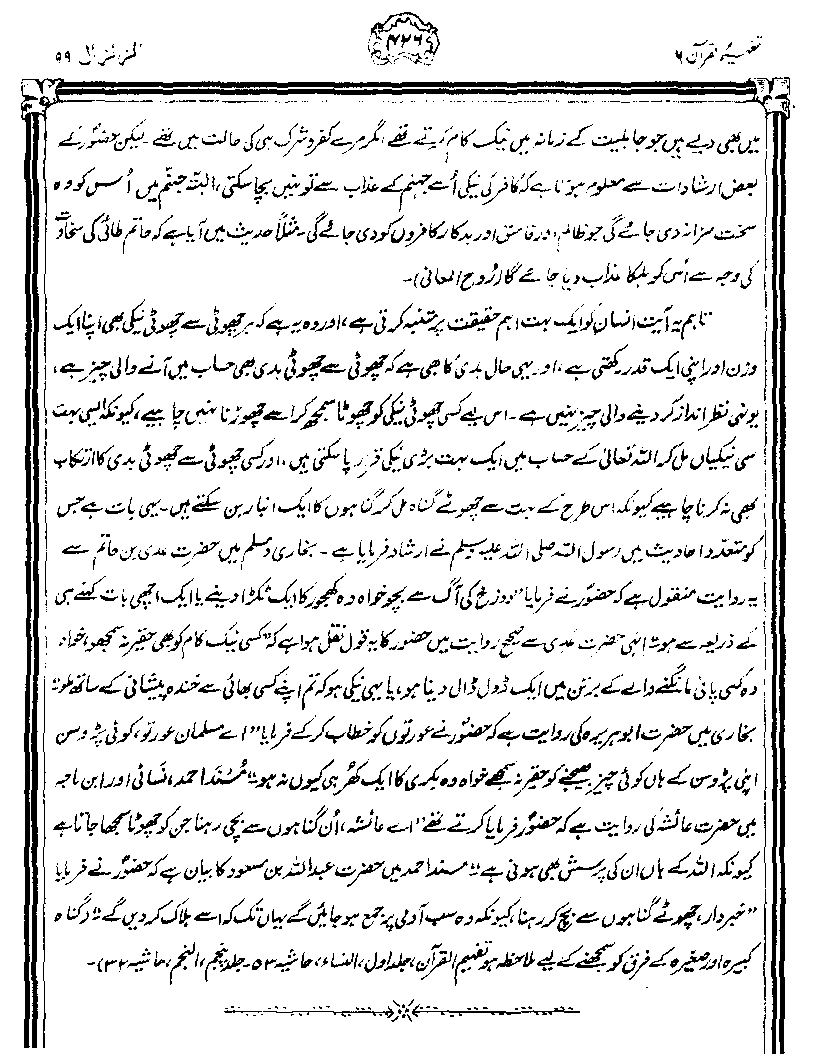 تفہیم القرآن ۶
۴۲۶
الزلزال ۹۹
میں بھی دیے ہیں جو جاہلیت کے زمانہ میں نیک کام کرتے تھے، مگر مرے کفر و شرک ہی کی حالت میں تھے۔ لیکن حضورؐ کے
بعض ارشادات سے معلوم ہوتا ہے کہ کافر کی نیکی اُسے جہنم کے عذاب سے تو نہیں بچا سکتی، البتہ جہنم میں اُس کو وہ
سخت سزا نہ دی جائے گی جو ظالم، اور فاسق اور بدکار کافروں کو دی جائے گی۔ مثلاً حدیث میں آیا ہے کہ حاتم طائی کی سخاوت
کی وجہ سے اُس کو ہلکا عذاب دیا جائے گا (رُوح المعانی)۔
تاہم یہ آیت انسان کو ایک بہت اہم حقیقت پر متنبہ کرتی ہے، اور وہ یہ ہے کہ ہر چھوٹی سے چھوٹی نیکی بھی اپنا ایک
وزن اور اپنی ایک قدر رکھتی ہے، اور یہی حال بدی کا بھی ہے کہ چھوٹی سے چھوٹی بدی بھی حساب میں آنے والی چیز ہے،
یونہی نظر انداز کر دینے والی چیز نہیں ہے۔ اس لیے کسی چھوٹی نیکی کو چھوٹا سمجھ کر اسے چھوڑنا نہیں چاہیے، کیونکہ ایسی بہت
سی نیکیاں مل کر اللہ تعالیٰ کے حساب میں ایک بہت بڑی نیکی قرار پا سکتی ہیں، اور کسی چھوٹی سے چھوٹی بدی کا ارتکاب
بھی نہ کرنا چاہیے کیونکہ اس طرح کے بہت سے چھوٹے گناہ مل کر گناہوں کا ایک انبار بن سکتے ہیں۔ یہی بات ہے جس
کو متعدد احادیث میں رسول اللہ صلی اللہ علیہ وسلم نے ارشاد فرمایا ہے۔ بخاری و مسلم میں حضرت عدی بن حاتم سے
یہ روایت منقول ہے کہ حضورؐ نے فرمایا "دوزخ کی آگ سے بچو خواہ وہ کھجور کا ایک ٹکڑا دینے یا ایک اچھی بات کہنے ہی
کے ذریعہ سے ہو" انہی حضرت عدی سے صحیح روایت میں حضور کا یہ قول نقل ہوا ہے کہ "کسی نیک کام کو بھی حقیر نہ سمجھو، خواہ
وہ کسی پانی مانگنے والے کے برتن میں ایک ڈول ڈال دینا ہو، یا یہی نیکی ہو کہ تم اپنے کسی بھائی سے خندہ پیشانی کے ساتھ ملو"
بخاری میں حضرت ابو ہریرہ کی روایت ہے کہ حضورؐ نے عورتوں کو خطاب کر کے فرمایا "اے مسلمان عورتو، کوئی پڑوسن
اپنی پڑوسن کے ہاں کوئی چیز بھیجنے کو حقیر نہ سمجھے خواہ وہ بکری کا ایک کھُر ہی کیوں نہ ہو" مُسند احمد، نسائی اور ابن ماجہ
میں حضرت عائشہؓ کی روایت ہے کہ حضورؐ فرمایا کرتے تھے "اے عائشہ، اُن گناہوں سے بچی رہنا جن کو چھوٹا سمجھا جاتا ہے
کیونکہ اللہ کے ہاں ان کی پرسش بھی ہونی ہے" مسند احمد میں حضرت عبداللہ بن مسعود کا بیان ہے کہ حضورؐ نے فرمایا
"خبردار، چھوٹے گناہوں سے بچ کر رہنا، کیونکہ وہ سب آدمی پر جمع ہو جائیں گے یہاں تک کہ اسے ہلاک کر دیں گے" (گناہ
کبیرہ اور صغیرہ کے فرق کو سمجھنے کے لیے ملاحظہ ہو تفہیم القرآن، جلد اول، النساء، حاشیہ ۵۳۔ جلد پنجم، النجم، حاشیہ ۳۲)۔